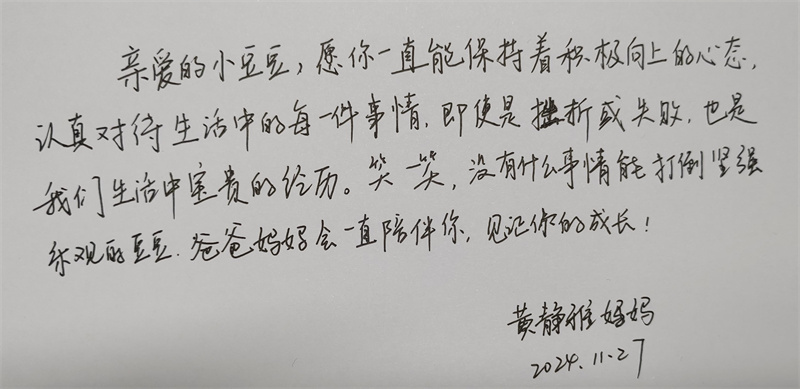 亲爱的小豆豆,愿你一直能保持着积极向上的心态,
认真对待生活中的每一件事情,即使是挫折或失败,也是
我们生活中宝贵的经历。笑一笑,没有什么事情能打倒坚强
乐观的豆豆.爸爸妈妈会一直陪伴你,见证你的成长!
黄静雅妈妈
2024.11.27